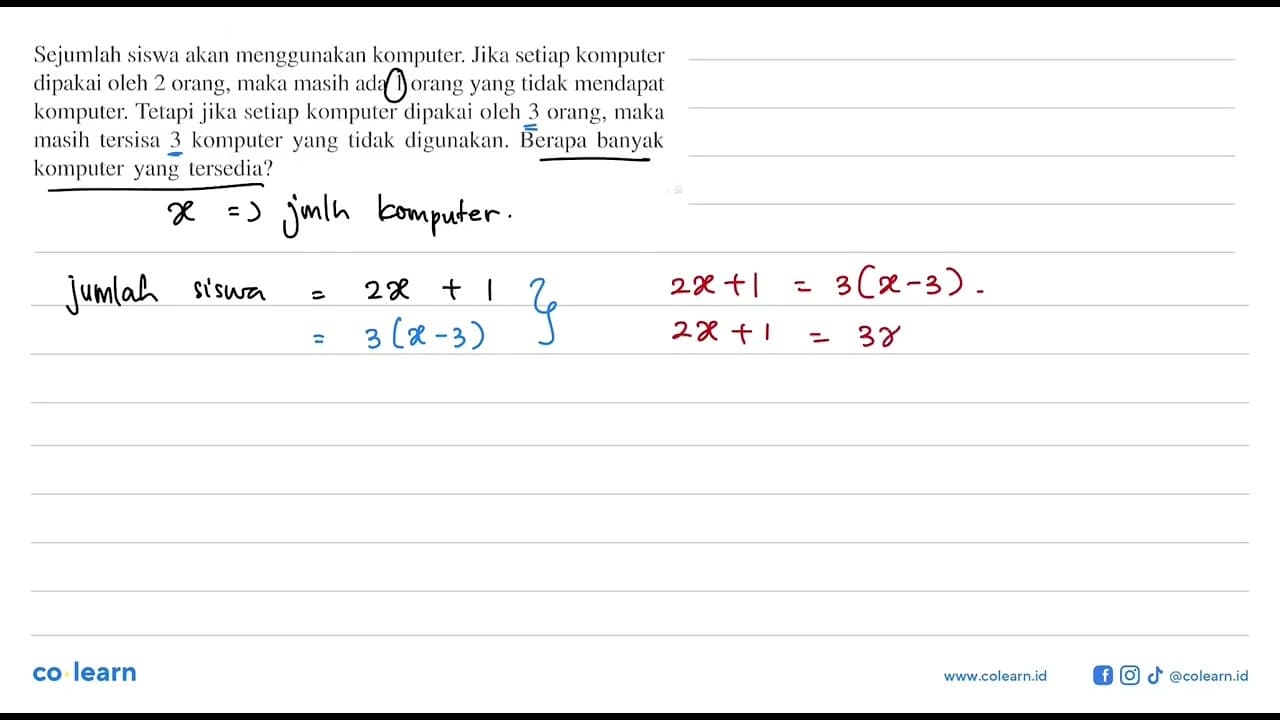 Sejumlah siswa akan menggunakan komputer. Jika setiap komputer
dipakai oleh 2 orang, maka masih ada 1 orang yang tidak mendapat
komputer. Tetapi jika setiap komputer dipakai oleh 3 orang, maka
masih tersisa 3 komputer yang tidak digunakan. Berapa banyak
komputer yang tersedia?
x => jmlh komputer.
jumlah siswa = 2x + 1
= 3(x-3)
2x+1 = 3(x-3).
2x+1 = 3x
co learn
www.colearn.id
@colearn.id